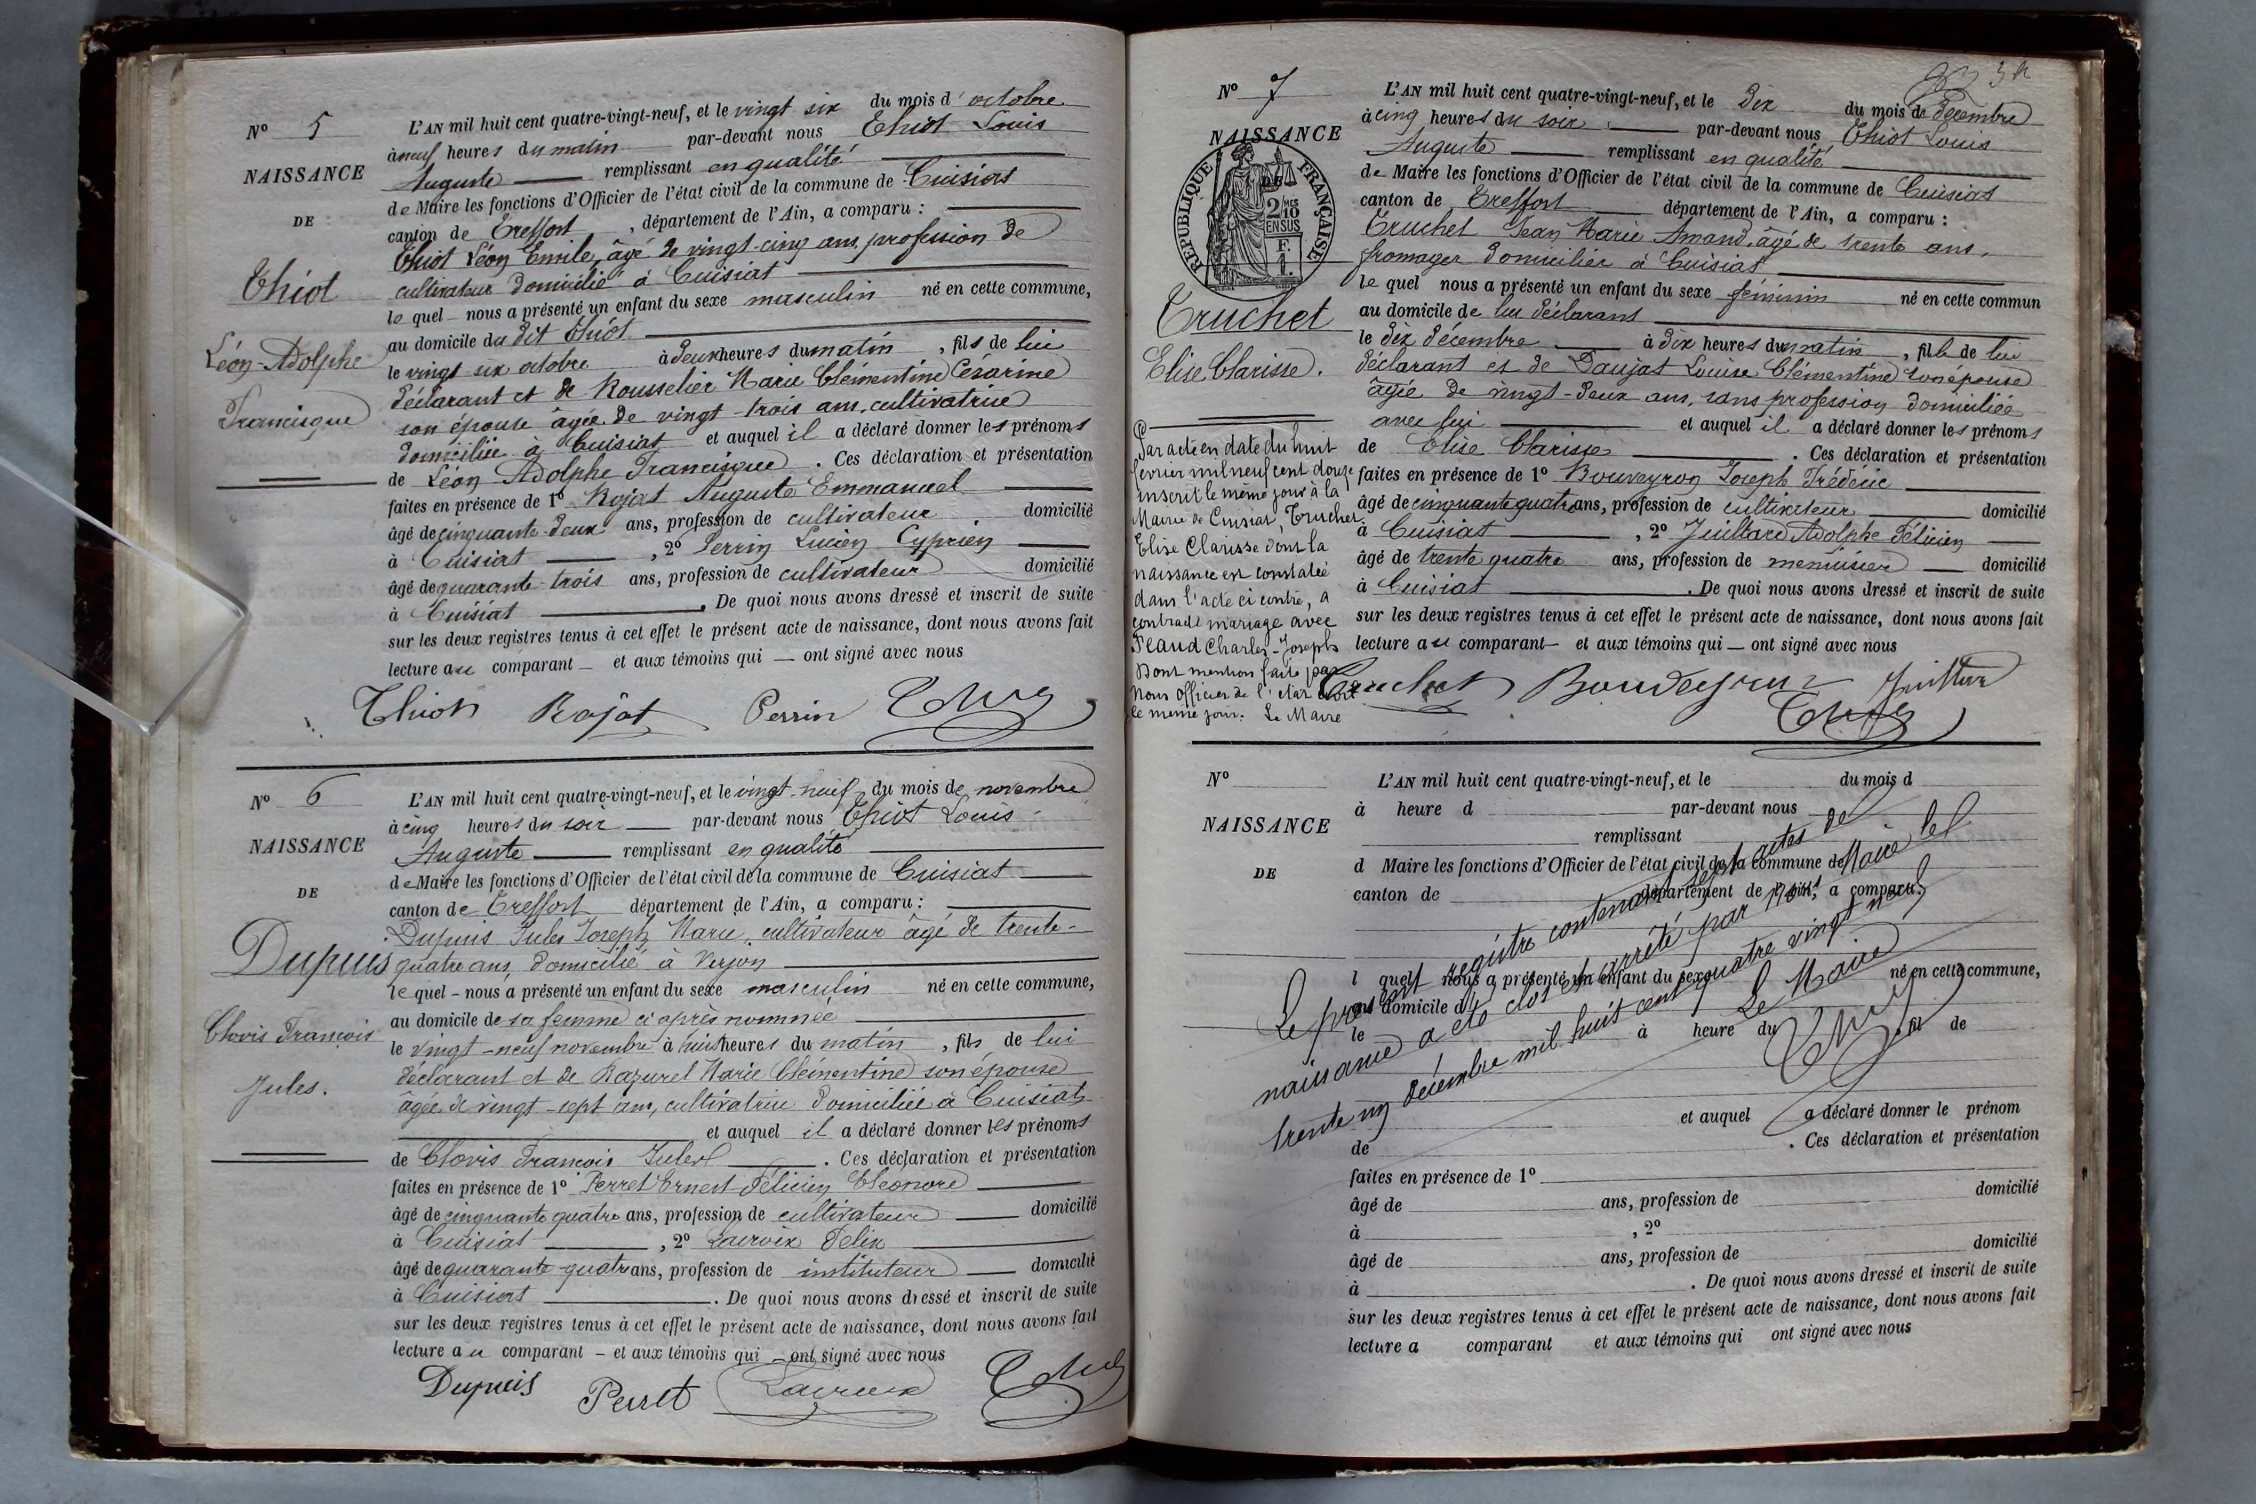 N° 5
NAISSANCE
DE
Thiot
Léon Adolphe
Francisque
L'AN mil huit cent quatre-vingt-neuf, et le vingt six du mois d'octobre
à neuf heures du matin par-devant nous Thiot Louis
Auguste remplissant en qualité
de Maire les fonctions d'Officier de l'état civil de la commune de Cuisiat
canton de Treffort, département de l'Ain, a comparu :
Thiot Léon Emile, âgé de vingt-cinq ans, profession de
cultivateur domicilié à Cuisiat
le quel nous a présenté un enfant du sexe masculin né en cette commune,
au domicile du dit Thiot
le vingt six octobre à deux heures du matin, fils de lui
déclarant et de Rousselier Marie Clémentine Césarine
son épouse âgée de vingt-trois ans, cultivatrice
domiciliée à Cuisiat et auquel il a déclaré donner les prénoms
de Léon Adolphe Francisque. Ces déclaration et présentation
faites en présence de 1° Rojat Auguste Emmanuel
âgé de cinquante-deux ans, profession de cultivateur domicilié
à Cuisiat, 2° Perrin Lucien Cyprien
âgé de quarante-trois ans, profession de cultivateur domicilié
à Cuisiat. De quoi nous avons dressé et inscrit de suite
sur les deux registres tenus à cet effet le présent acte de naissance, dont nous avons fait
lecture au comparant et aux témoins qui ont signé avec nous
Thiot Rojat Perrin
N° 6
NAISSANCE
DE
Dupuis
Clovis François
Jules.
L'AN mil huit cent quatre-vingt-neuf, et le vingt-neuf du mois de novembre
à cinq heures du soir par-devant nous Thiot Louis
Auguste remplissant en qualité
de Maire les fonctions d'Officier de l'état civil de la commune de Cuisiat
canton de Treffort département de l'Ain, a comparu :
Dupuis Jules Joseph Marie, cultivateur âgé de trente-
quatre ans, domicilié à Verjon
le quel - nous a présenté un enfant du sexe masculin né en cette commune,
au domicile de sa femme ci après nommée
le vingt-neuf novembre à huit heures du matin, fils de lui
déclarant et de Bazurel Marie Clémentine son épouse
âgée de vingt-sept ans, cultivatrice domiciliée à Cuisiat
et auquel il a déclaré donner les prénoms
de Clovis François Jules. Ces déclaration et présentation
faites en présence de 1° Perret Ernest Félicien Eléonore
âgé de cinquante quatre ans, profession de cultivateur domicilié
à Cuisiat, 2° Lacroix Félix
âgé de quarante-quatre ans, profession de instituteur domicilié
à Cuisiat. De quoi nous avons dressé et inscrit de suite
sur les deux registres tenus à cet effet le présent acte de naissance, dont nous avons fait
lecture au comparant - et aux témoins qui - ont signé avec nous
Dupuis Perret Lacroix
N° 7
NAISSANCE
DE
RÉPUBLIQUE FRANÇAISE
2/10 MES
EN SUS
F.
1.
Truchet
Elise Clarisse.
Par acte en date du huit
février mil neuf cent douze
inscrit le même jour à la
Mairie de Cuisiat, Truchet
Elise Clarisse dont la
naissance est constatée
dans l'acte ci contre, a
contracté mariage avec
Féaud Charles-Joseph
Dont mention faite par
Nous officier de l'état civil
le même jour. Le Maire
L'AN mil huit cent quatre-vingt-neuf, et le dix du mois de décembre
à cinq heures du soir par-devant nous Thiot Louis
Auguste remplissant en qualité
de Maire les fonctions d'Officier de l'état civil de la commune de Cuisiat
canton de Treffort département de l'Ain, a comparu :
Truchet Jean Marie Amand, âgé de trente ans,
fromager domicilier à Cuisiat
le quel nous a présenté un enfant du sexe féminin né en cette commun
au domicile de lui déclarant
le dix décembre à dix heures du matin, fille de lui
déclarant et de Daujat Louise Clémentine son épouse
âgée de vingt-deux ans, sans profession domiciliée
avec lui et auquel il a déclaré donner les prénoms
de Elise Clarisse. Ces déclaration et présentation
faites en présence de 1° Bouveyron Joseph Frédéric
âgé de cinquante quatre ans, profession de cultivateur domicilié
à Cuisiat, 2° Juillard Adolphe Félicien
âgé de trente quatre ans, profession de menuisier domicilié
à Cuisiat. De quoi nous avons dressé et inscrit de suite
sur les deux registres tenus à cet effet le présent acte de naissance, dont nous avons fait
lecture au comparant - et aux témoins qui - ont signé avec nous
Truchet Bouveyron Juillard
N°
NAISSANCE
DE
L'AN mil huit cent quatre-vingt-neuf, et le du mois d
à heure d par-devant nous
remplissant
d Maire les fonctions d'Officier de l'état civil de la commune de
canton de département de l'Ain, a comparu :
l quel nous a présenté un enfant du sexe né en cette commune,
au domicile d
le à heure du fil de
et auquel a déclaré donner le prénom
de . Ces déclaration et présentation
faites en présence de 1°
âgé de ans, profession de domicilié
à , 2°
âgé de ans, profession de domicilié
à . De quoi nous avons dressé et inscrit de suite
sur les deux registres tenus à cet effet le présent acte de naissance, dont nous avons fait
lecture a comparant et aux témoins qui ont signé avec nous
Le présent registre contenant sept actes de
naissance a été clos et arrêté par nous Maire le
trente un décembre mil huit cent quatre vingt neuf
Le Maire